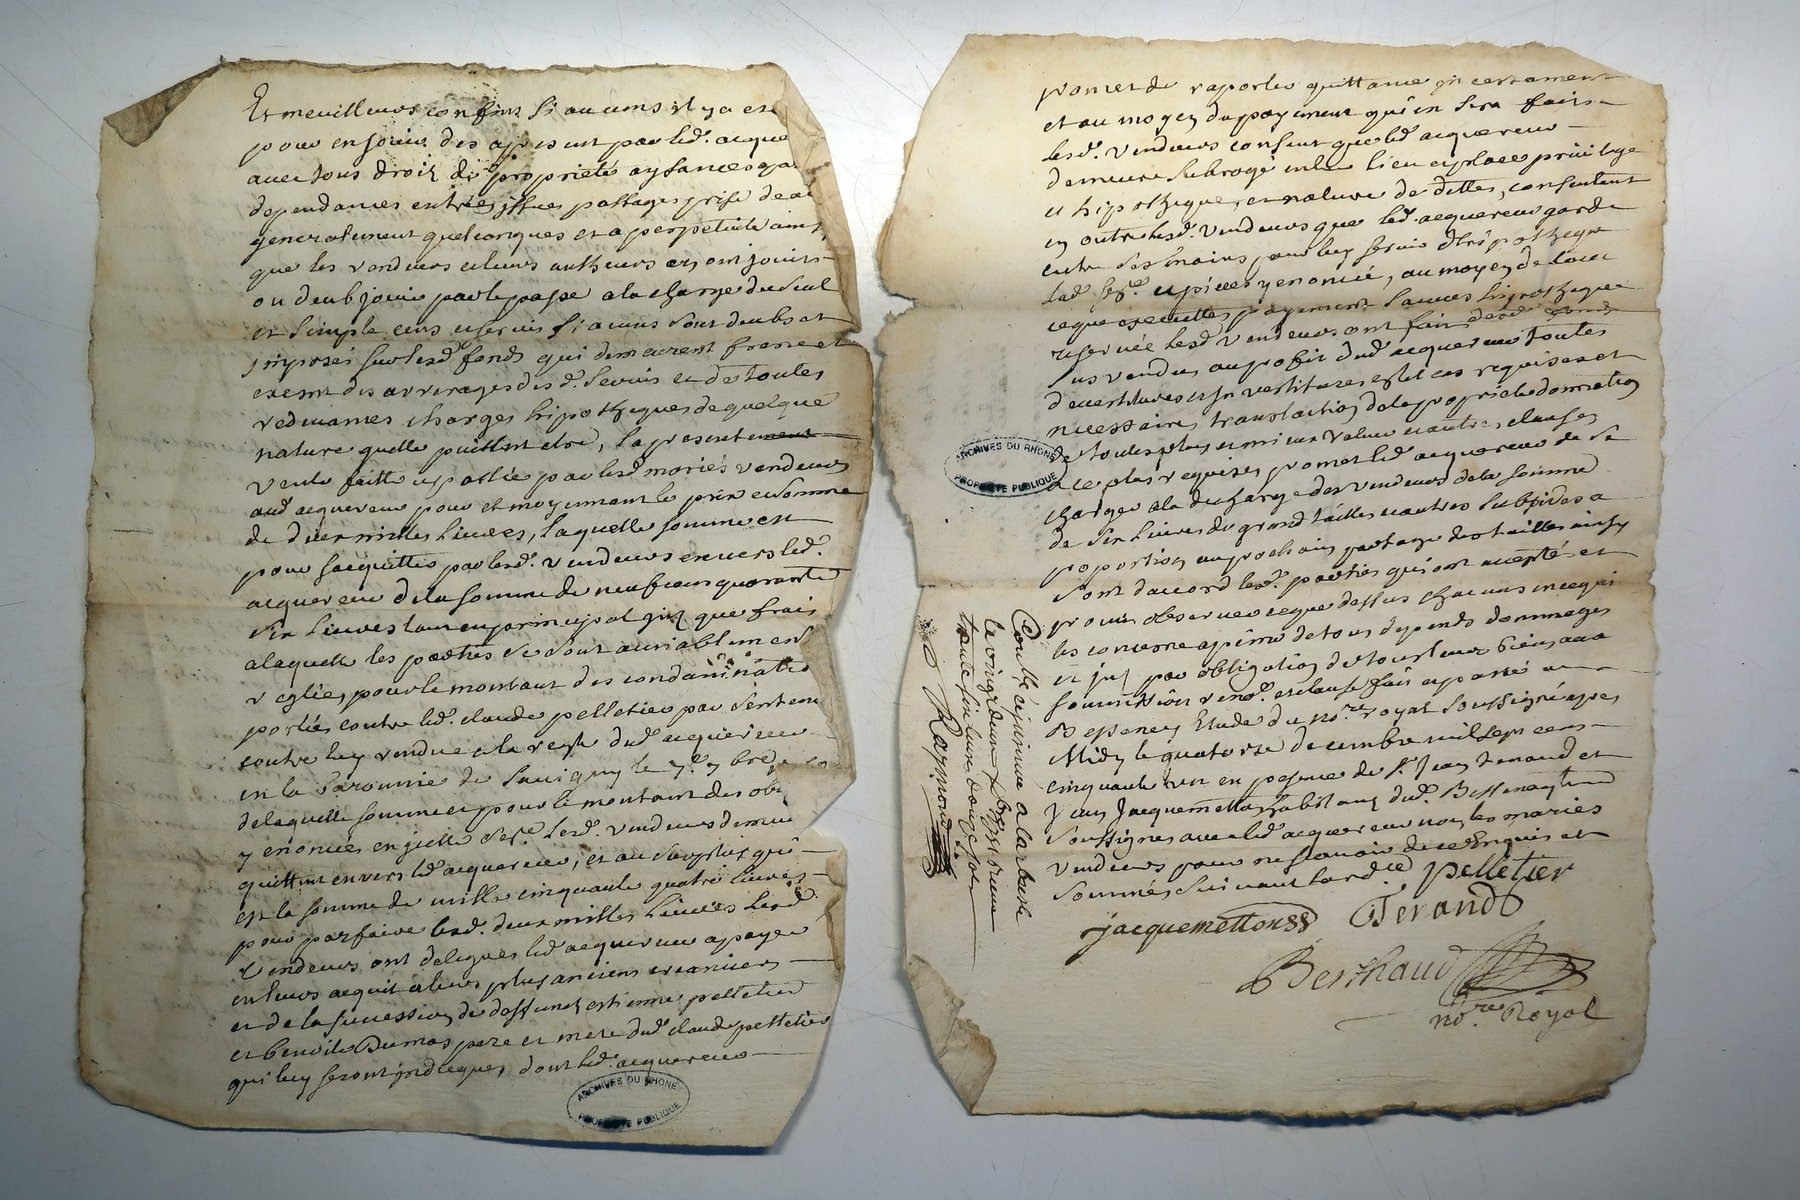 Et meuilleurs confins si aucuns il y a et
pour en jouir des apresent par led. acque
avec tous droit de proprieté aysances
dependances entrées issues passages prise de
generalement quelconques et a perpetuité ains
que les vendeurs et leurs autheurs en ont jouis
ou deub jouir par le passe a la charge du seul
et simple cens et servis si aucuns sont deubs et
imposés sur lesd. fonds qui demeurent franc et
exempt des arrerages desd. servis et de toutes
redevances charges hipotheques de quelque
nature quelle puissent etre, la presente
vente faitte et passée par lesd. mariés vendeurs
aud. acquereur pour et moyennant le prix et somme
de deux milles livres, laquelle somme est
pour sacquitter par lesd. vendeurs envers led.
acquereur de la somme de neuf cens quarante
six livres tant en principal que frais
a laquelle les parties se sont amiablement
reglées pour le montant des condamnations
portées contre led. claude pelletier par sentence
contre luy rendue a la reqte dud. acquereur
en la Baronnie de Savigny le 7e 7bre
de laquelle somme et pour le montant des
y enoncés en icelle lesd. vendeurs demeu
quittent envers led. acquereur, et au surplus qui
est la somme de mille cinquante quatre livres
pour parfaire lesd. deux milles livres lesd.
vendeurs ont delegués led. acquereur a payer
en leurs acquit a leurs plus anciens creanciers
et de la succession de deffunct estienne pelletier
et benoite Dumas pere et mere dud. claude pelletier
qui luy seront indiqués, dont led. acquereur
ARCHIVES DU RHONE
PROPRIÉTÉ PUBLIQUE
promet de raporter quittance incessament
et au moyen du payement qui en sera fait
lesd. vendeurs consent que led. acquereur
demeure subrogé en leur lieu et place privilege
et hipotheque, et nature de dettes, consentent
en outre lesd. vendeurs que led. acquereur garde
entre ses mains pour luy servir d'hipotheque
lad. et pieces y enoncé, au moyen de tout
ce que payement sauves hipotheque
reservée lesd. vendeurs ont fait desd. fonds
sus vendus au profit dud. acquereur toutes
devestitures et investitures et clauses requises et
necessaires, translation de la proprieté donnation
de toutes plus et mieux value et autres clauses
a ce plus requises, promet led. acquereur de se
charger a la decharge des vendeurs de la somme
de six livres du grand tailles et autres subsides a
proportion au prochain partage des tailles ainsy
sont d'accord lesd. parties qui ont accepté et
promis observer ce que dessus chacuns en ce qui
les concerne a peine de tous depends dommages
et int. par obligation de tous leurs biens aux
soumission renon. et clause fait et passé a
Bessenay Etude du nore royal soussigné apres
Midy le quatorze decembre mil sept cens
cinquante un en presence de Sr Jean Terand et
Jean Jacquemetton habitans dud. Bessenay
soussignes avec led. acquereur non les mariés
vendeurs pour ne sçavoir de ce Enquis et
sommés suivant lord ce pelletier
jacquemetton Terand
Berthaud
nore Royal
Controllé et insinué a larbresle
le vingt deux Xbre 1751 reçu
trente six livres douze sols
Raymond
ARCHIVES DU RHONE
PROPRIÉTÉ PUBLIQUE